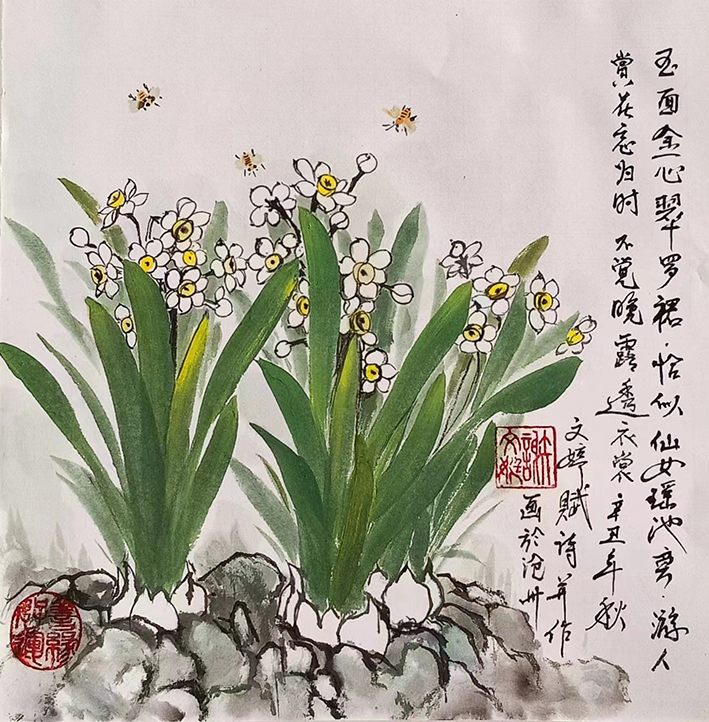 玉面金心翠罗裙·恰似仙女瑶池来·游人
赏花忘归时 不觉晚露透衣裳 辛丑年秋
文婷赋诗并作
画於沧州